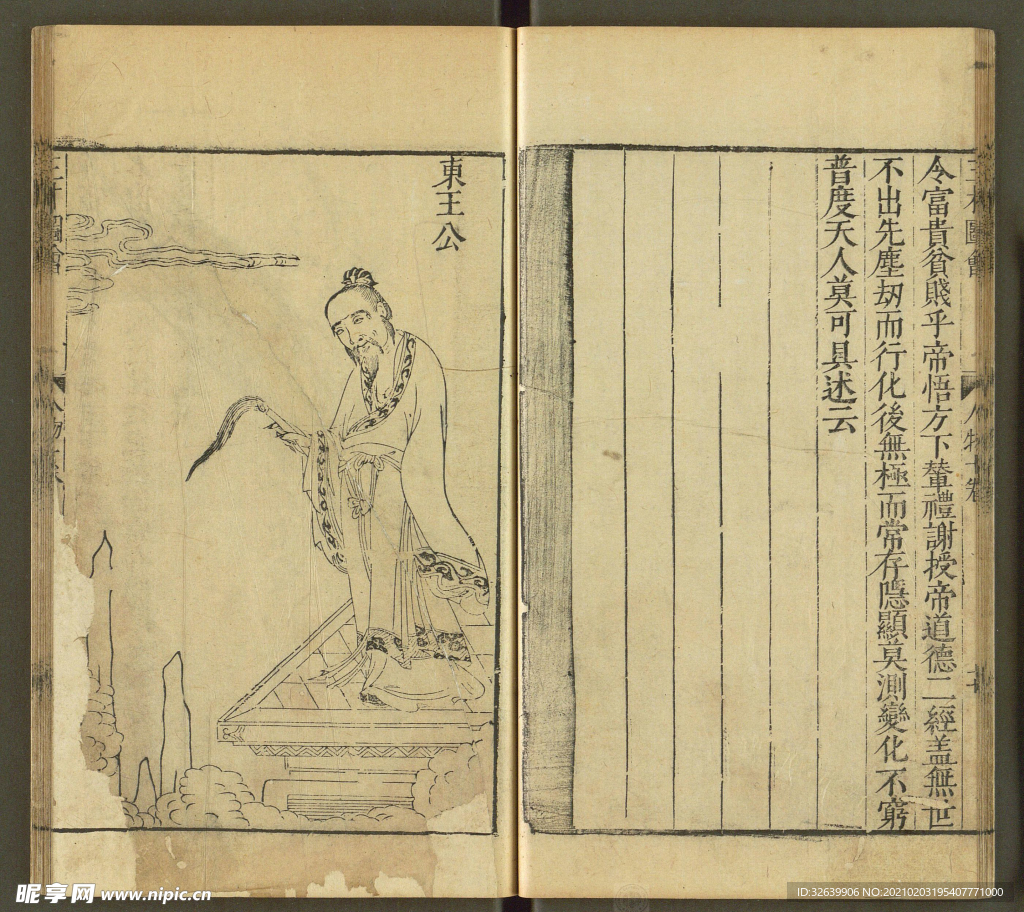 三才圖會
人物十卷
令富貴貧賤乎帝悟方下輦禮謝授帝道德二經盖無世
不出先塵劫而行化後無極而常存隱顯莫測變化不窮
普度天人莫可具述云
東王公
三才圖會
人物
昵享网 www.nipic.cn
ID:32639906 NO:20210203195407771000